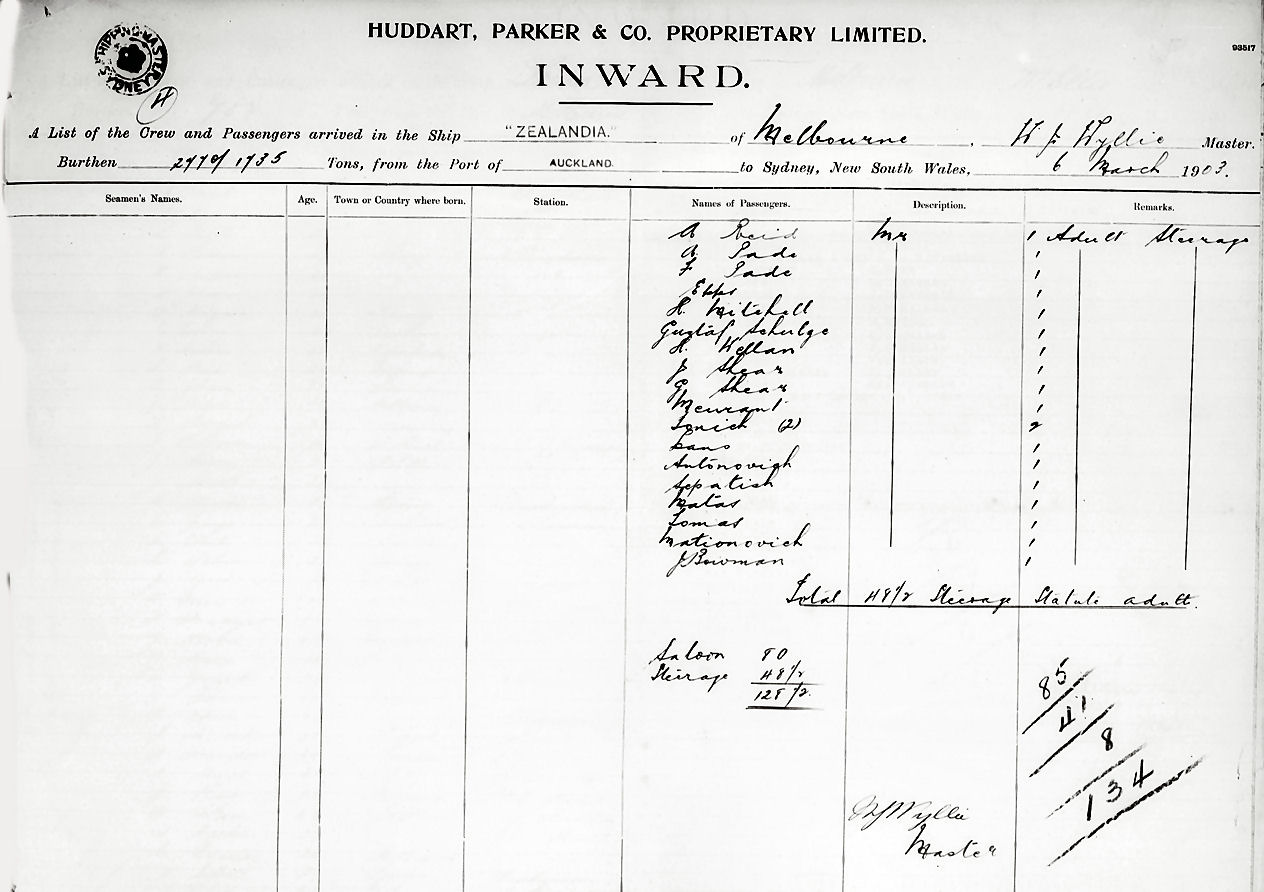 HUDDART, PARKER & CO. PROPRIETARY LIMITED.
93517
SHIPPING MASTER SYDNEY
INWARD.
4
A List of the Crew and Passengers arrived in the Ship "ZEALANDIA." of Melbourne, W J Wyllie Master.
Burthen 2770/1735 Tons, from the Port of AUCKLAND. to Sydney, New South Wales, 6 March 1903.
Seamen's Names. Age. Town or Country where born. Station. Names of Passengers. Description. Remarks.
A Reid Mr 1 Adult Steerage
A Pade 1
F Pade 1
Epps 1
H. Mitchell 1
Gustaf Schulze 1
H. Wellan 1
J Shear 1
G Shear 1
Meurant 1
(2) 2
1
Antonovich 1
1
Matas 1
Tomas 1
Mationovich 1
J Bowman 1
Total 48 1/2 Steerage Statute adult.
Saloon 80
Steerage 48 1/2
128 1/2
85
41
8
134
W J Wyllie
Master